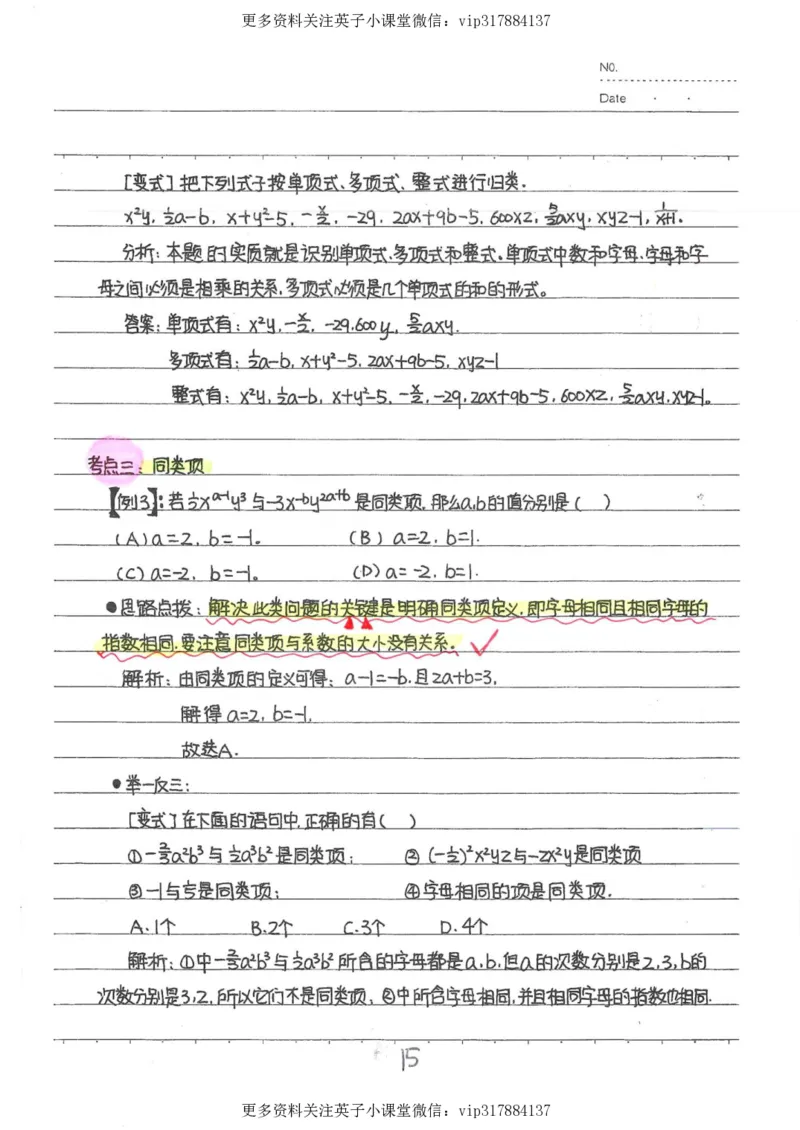 更多资料关注英子小课堂微信：vip317884137
NO.
Date
[变式] 把下列式子按单项式、多项式、整式进行归类.
x²y, ½a-b, x+y²-5, -x/2, -29, 2ax+9b-5, 600xz, 5/2axy, xyz-1, 1/(x+1).
分析: 本题的实质就是识别单项式、多项式和整式。单项式中数和字母、字母和字
母之间必须是相乘的关系, 多项式必须是几个单项式的和的形式。
答案: 单项式有: x²y, -x/2, -29, 600y, 5/2axy.
多项式有: ½a-b, x+y²-5, 2ax+9b-5, xyz-1
整式有: x²y, ½a-b, x+y²-5, -x/2, -29, 2ax+9b-5, 600xz, 5/2axy, xyz-1。
考点三: 同类项
【例3】: 若½xᵃ⁻¹y³与-3x⁻ᵇy²ᵃ⁺ᵇ是同类项, 那么a,b的值分别是( )
(A) a=2, b=-1。 (B) a=2, b=1.
(C) a=-2, b=-1。 (D) a=-2, b=1.
●思路点拨: 解决此类问题的关键是明确同类项定义, 即字母相同且相同字母的
指数相同, 要注意同类项与系数的大小没有关系.
解析: 由同类项的定义可得: a-1=-b, 且2a+b=3,
解得 a=2, b=-1,
故选A.
●举一反三:
[变式] 在下面的语句中, 正确的有( )
①-⅔a²b³与½a³b²是同类项; ②(-½)²x²yz与-zx²y是同类项
③-1与⅕是同类项; ④字母相同的项是同类项.
A.1个 B.2个 C.3个 D.4个
解析: ①中-⅔a²b³与½a³b²所含的字母都是a,b,但a的次数分别是2,3,b的
次数分别是3,2,所以它们不是同类项; ②中所含字母相同,并且相同字母的指数也相同.
15
更多资料关注英子小课堂微信：vip317884137